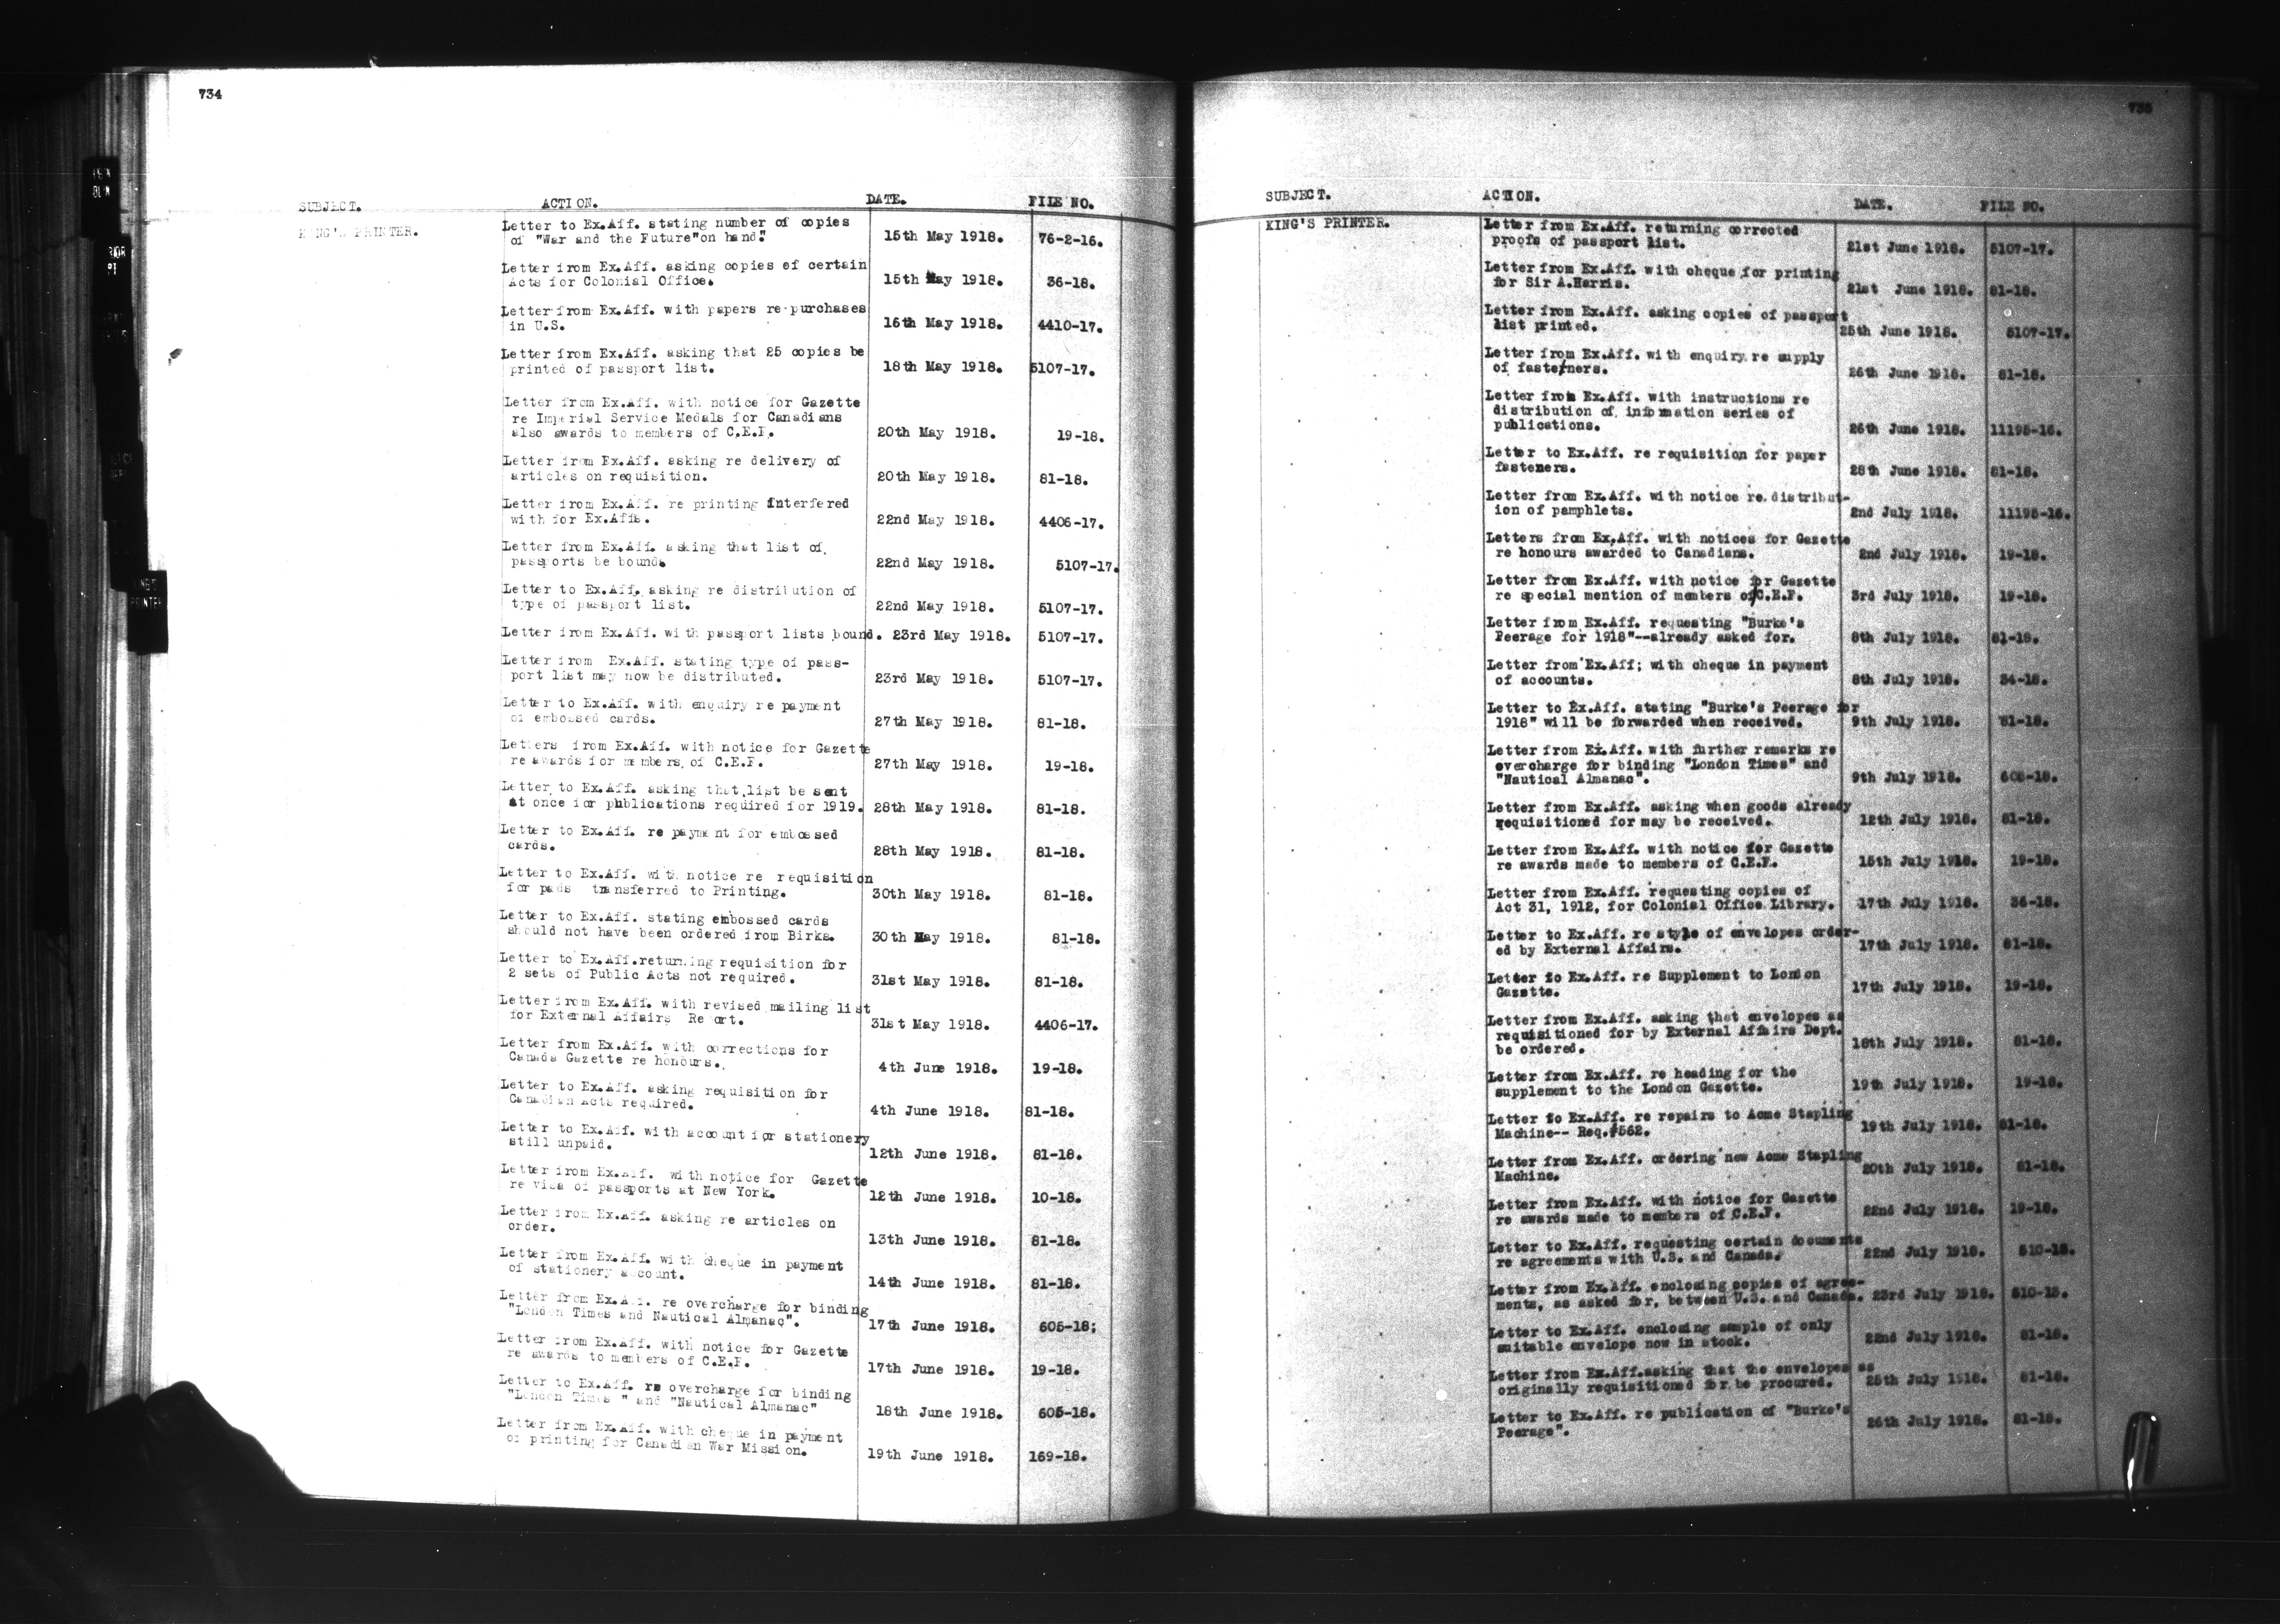 734
SUBJECT. ACTION. DATE. FILE NO.
KING'S PRINTER. Letter to Ex.Aff. stating number of copies
of "War and the Future"on hand." 15th May 1918. 76-2-16.
Letter from Ex.Aff. asking copies of certain
Acts for Colonial Office. 15th May 1918. 36-18.
Letter from Ex.Aff. with papers re purchases
in U.S. 16th May 1918. 4410-17.
Letter from Ex.Aff. asking that 25 copies be
printed of passport list. 18th May 1918. 5107-17.
Letter from Ex.Aff. with notice for Gazette
re Imperial Service Medals for Canadians
also awards to members of C.E.F. 20th May 1918. 19-18.
Letter from Ex.Aff. asking re delivery of
articles on requisition. 20th May 1918. 81-18.
Letter from Ex.Aff. re printing interfered
with for Ex.Affs. 22nd May 1918. 4406-17.
Letter from Ex.Aff. asking that list of
passports be bound. 22nd May 1918. 5107-17.
Letter to Ex.Aff. asking re distribution of
type of passport list. 22nd May 1918. 5107-17.
Letter from Ex.Aff. with passport lists bound. 23rd May 1918. 5107-17.
Letter from Ex.Aff. stating type of pass-
port list may now be distributed. 23rd May 1918. 5107-17.
Letter to Ex.Aff. with enquiry re payment
of embossed cards. 27th May 1918. 81-18.
Letters from Ex.Aff. with notice for Gazette
re awards for members of C.E.F. 27th May 1918. 19-18.
Letter to Ex.Aff. asking that list be sent
at once for publications required for 1919. 28th May 1918. 81-18.
Letter to Ex.Aff. re payment for embossed
cards. 28th May 1918. 81-18.
Letter to Ex.Aff. with notice re requisition
for pads transferred to Printing. 30th May 1918. 81-18.
Letter to Ex.Aff. stating embossed cards
should not have been ordered from Birks. 30th May 1918. 81-18.
Letter to Ex.Aff.returning requisition for
2 sets of Public Acts not required. 31st May 1918. 81-18.
Letter from Ex.Aff. with revised mailing list
for External Affairs Re ort. 31st May 1918. 4406-17.
Letter from Ex.Aff. with corrections for
Canada Gazette re honours. 4th June 1918. 19-18.
Letter to Ex.Aff. asking requisition for
Canadian Acts required. 4th June 1918. 81-18.
Letter to Ex.Aff. with account for stationery
still unpaid. 12th June 1918. 81-18.
Letter from Ex.Aff. with notice for Gazette
re visa of passports at New York. 12th June 1918. 10-18.
Letter from Ex.Aff. asking re articles on
order. 13th June 1918. 81-18.
Letter from Ex.Aff. with cheque in payment
of stationery account. 14th June 1918. 81-18.
Letter from Ex.Aff. re overcharge for binding
"London Times and Nautical Almanac". 17th June 1918. 605-18;
Letter from Ex.Aff. with notice for Gazette
re awards to members of C.E.F. 17th June 1918. 19-18.
Letter to Ex.Aff. re overcharge for binding
"London Times " and "Nautical Almanac" 18th June 1918. 605-18.
Letter from Ex.Aff. with cheque in payment
of printing for Canadian War Mission. 19th June 1918. 169-18.
735
SUBJECT. ACTION. DATE. FILE NO.
KING'S PRINTER. Letter from Ex.Aff. returning corrected
proofs of passport list. 21st June 1918. 5107-17.
Letter from Ex.Aff. with cheque for printing
for Sir A.Harris. 21st June 1918. 81-18.
Letter from Ex.Aff. asking copies of passport
list printed. 25th June 1918. 5107-17.
Letter from Ex.Aff. with enquiry re supply
of fasteners. 26th June 1918. 81-18.
Letter from Ex.Aff. with instructions re
distribution of information series of
publications. 26th June 1918. 11195-16.
Letter to Ex.Aff. re requisition for paper
fasteners. 28th June 1918. 81-18.
Letter from Ex.Aff. with notice re distribut-
ion of pamphlets. 2nd July 1918. 11195-16.
Letters from Ex.Aff. with notices for Gazette
re honours awarded to Canadians. 2nd July 1918. 19-18.
Letter from Ex.Aff. with notice for Gazette
re special mention of members of C.E.F. 3rd July 1918. 19-18.
Letter from Ex.Aff. requesting "Burke's
Peerage for 1918"--already asked for. 8th July 1918. 81-18.
Letter from Ex.Aff; with cheque in payment
of accounts. 8th July 1918. 34-18.
Letter to Ex.Aff. stating "Burke's Peerage for
1918" will be forwarded when received. 9th July 1918. 81-18.
Letter from Ex.Aff. with further remarks re
overcharge for binding "London Times" and
"Nautical Almanac". 9th July 1918. 605-18.
Letter from Ex.Aff. asking when goods already
requisitioned for may be received. 12th July 1918. 81-18.
Letter from Ex.Aff. with notice for Gazette
re awards made to members of C.E.F. 15th July 1918. 19-18.
Letter from Ex.Aff. requesting copies of
Act 31, 1912, for Colonial Office Library. 17th July 1918. 36-18.
Letter to Ex.Aff. re style of envelopes order-
ed by External Affairs. 17th July 1918. 81-18.
Letter to Ex.Aff. re Supplement to London
Gazette. 17th July 1918. 19-18.
Letter from Ex.Aff. asking that envelopes as
requisitioned for by External Affairs Dept.
be ordered. 18th July 1918. 81-18.
Letter from Ex.Aff. re heading for the
supplement to the London Gazette. 19th July 1918. 19-18.
Letter to Ex.Aff. re repairs to Acme Stapling
Machine-- Req.#562. 19th July 1918. 81-18.
Letter from Ex.Aff. ordering new Acme Stapling
Machine. 20th July 1918. 81-18.
Letter from Ex.Aff. with notice for Gazette
re awards made to members of C.E.F. 22nd July 1918. 19-18.
Letter to Ex.Aff. requesting certain documents
re agreements with U.S. and Canada. 22nd July 1918. 510-18.
Letter from Ex.Aff. enclosing copies of agree-
ments, as asked for, between U.S. and Canada. 23rd July 1918. 510-18.
Letter to Ex.Aff. enclosing sample of only
suitable envelope now in stock. 22nd July 1918. 81-18.
Letter from Ex.Aff.asking that the envelopes as
originally requisitioned for be procured. 25th July 1918. 81-18.
Letter to Ex.Aff. re publication of "Burke's
Peerage". 26th July 1918. 81-18.